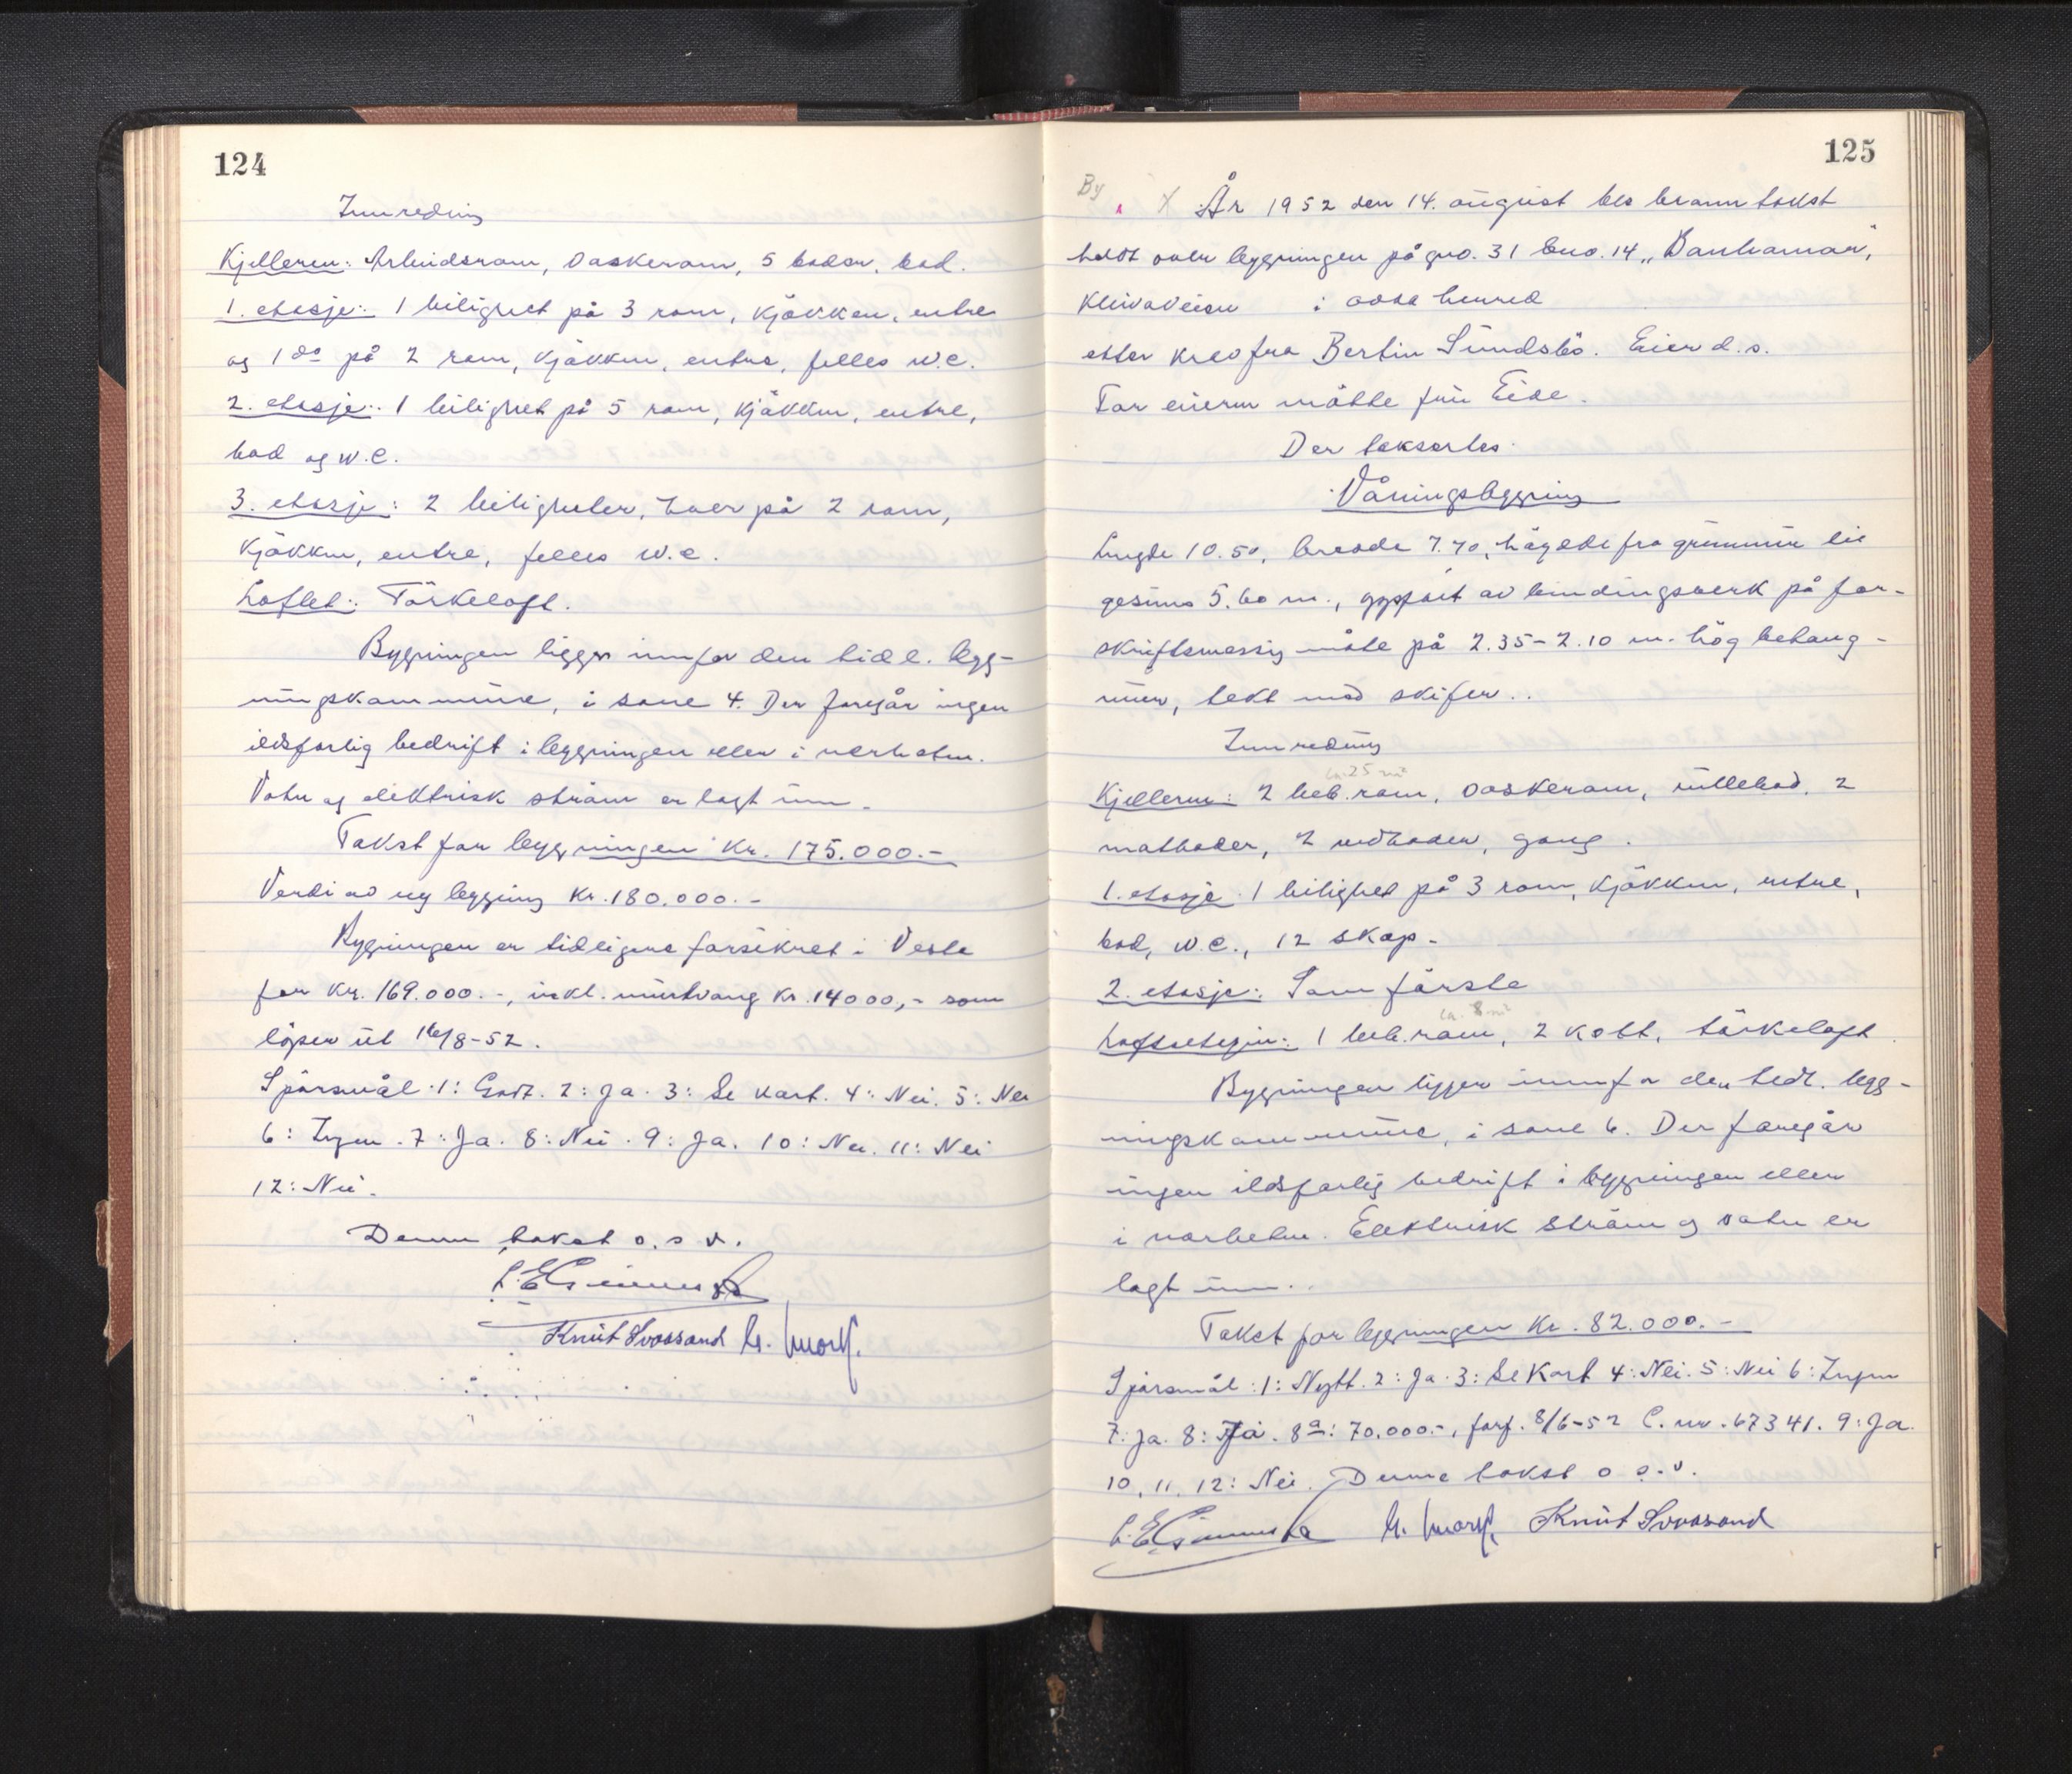 124
Innreding
Kjelleren: Arbeidsrom, vaskerom, 5 boder, bad.
1. etasje: 1 leilighet på 3 rom, kjøkken, entre
og 1 do på 2 rom, kjøkken, entre, felles w.c.
2. etasje: 1 leilighet på 5 rom, kjøkken, entre,
bad og w.c.
3. etasje: 2 leiligheter, hver på 2 rom,
kjøkken, entre, felles w.c.
Loftet: Tørkeloft.
Bygningen ligger innfor den tidl. byg-
ningskommune, i sone 4. Der foregår ingen
ildsfarlig bedrift i bygningen eller i nærheten.
Vatn og elektrisk strøm er lagt inn.
Takst for bygningen kr. 175.000.-
Verdi av ny bygning kr. 180.000.-
Bygningen er tidligere forsikret i Vesta
for kr. 169.000.-, inkl. murtvang kr. 14000,- som
løper ut 16/8-52.
Spørsmål 1: Godt. 2: Ja. 3: Se kart. 4: Nei. 5: Nei
6: Ingen. 7: Ja. 8: Nei. 9: Ja. 10: Nei. 11: Nei
12: Nei.
Denne takst o.s.v.
Knut Svaasand
125
By
X År 1952 den 14. august ble branntakst
holdt over bygningen på gno. 31 bno. 14 „
Kleivaveien i Odda herred
etter krav fra Bertin Sundsbø. Eier d.s.
For eieren møtte fru Eide.
Der taksertes
Våningsbygning
Lengde 10.50, bredde 7.70, høgde fra grunnmur til
gesims 5.60 m., oppført av bindingsverk på for-
skriftsmessig måte på 2.35-2.10 m. høg betong-
mur, tekt med skifer.
Innreding
ca. 25 m²
Kjelleren: 2 beb. rom, vaskerom, rullebod, 2
matboder, 2 vedboder, gang.
1. etasje: 1 leilighet på 3 rom, kjøkken, entre,
bad, w.c., 12 skap.
2. etasje: Som første
ca. 8 m²
Loftsetasjen: 1 beb. rom, 2 kott, tørkeloft.
Bygningen ligger innfor den tidl. byg-
ningskommune, i sone 6. Der foregår
ingen ildsfarlig bedrift i bygningen eller
i nærheten. Elektrisk strøm og vatn er
lagt inn.
Takst for bygningen kr. 82.000.-
Spørsmål: 1: Nytt. 2: Ja. 3: Se kart 4: Nei. 5: Nei 6: Ingen
7: Ja. 8: Ja. 8a: 70.000.-, forf. 8/6-52 C. nr. 67341. 9: Ja.
10, 11, 12: Nei. Denne takst o.s.v.
Knut Svaasand